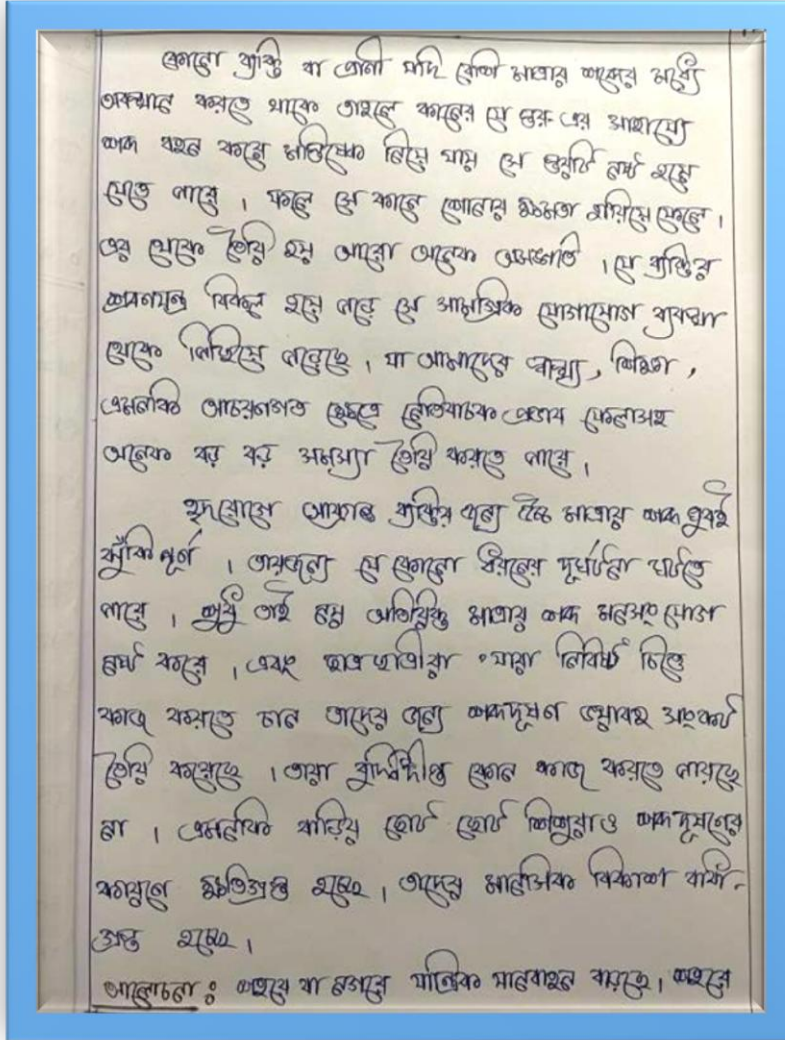 কোনো ব্যক্তি বা প্রানী যদি বেশি মাত্রার শব্দের মধ্যে
অবস্থান করতে থাকে তাহলে কানের যে স্তর এর সাহায্যে
শব্দ বহন করে মস্তিষ্কে নিয়ে যায় সে স্তরটি নষ্ট হয়ে
যেতে পারে । ফলে সে কানে শোনার ক্ষমতা হারিয়ে ফেলে ।
এর থেকে তৈরি হয় আরো অনেক অসঙ্গতি । যে ব্যক্তির
শ্রবণযন্ত্র বিকল হয়ে পরে সে সামগ্রিক যোগাযোগ ব্যবস্থা
থেকে পিছিয়ে পরেছে । যা আমাদের স্বাস্থ্য , শিক্ষা ,
এমনকি আচরনগত ক্ষেত্রে নেতিবাচক প্রভাব ফেলাসহ
অনেক বড় বড় সমস্যা তৈরি করতে পারে ।
হৃদরোগে আক্রান্ত ব্যক্তির জন্য উচ্চ মাত্রায় শব্দ খুবই
ঝুঁকিপূর্ণ । তারজন্য যে কোনো ধরনের দূর্ঘটনা ঘটতে
পারে । শুধু তাই নয় অতিরিক্ত মাত্রার শব্দ মনসংযোগ
নষ্ট করে । এবং ছাত্রছাত্রীরা যারা নিবিষ্ট চিত্তে
কাজ করতে চান তাদের জন্য শব্দদূষণ ভয়াবহ সংকট
তৈরি করেছে । তারা বুদ্ধিদীপ্ত কোন কাজ করতে পারছে
না । এমনকি বাড়ির ছোট ছোট শিশুরাও শব্দদূষণের
কারণে ক্ষতিগ্রস্ত হচ্ছে । তাদের মানসিক বিকাশ বাধা-
গ্রস্ত হচ্ছে ।
আলোচনা : শহরে বা নগরে যান্ত্রিক যানবাহন বাড়ছে । শহরে